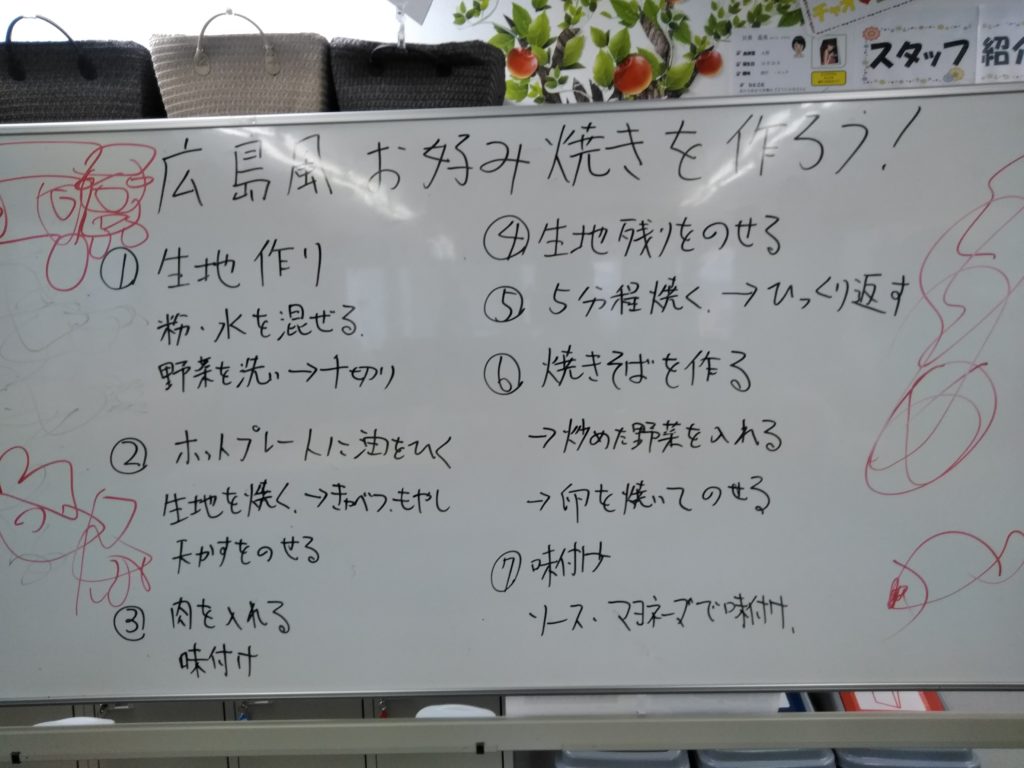 スタッフ紹介
広島風お好み焼きを作ろう!
① 生地作り
粉・水を混ぜる.
野菜を洗い→十切り
② ホットプレートに油をひく
生地を焼く.→きゃべつ.もやし
天かすをのせる
③ 肉を入れる
味付け
④ 生地残りをのせる
⑤ 5分程焼く.→ひっくり返す
⑥ 焼きそばを作る
→炒めた野菜を入れる
→卵を焼いてのせる
⑦ 味付け
ソース・マヨネーズで味付け.